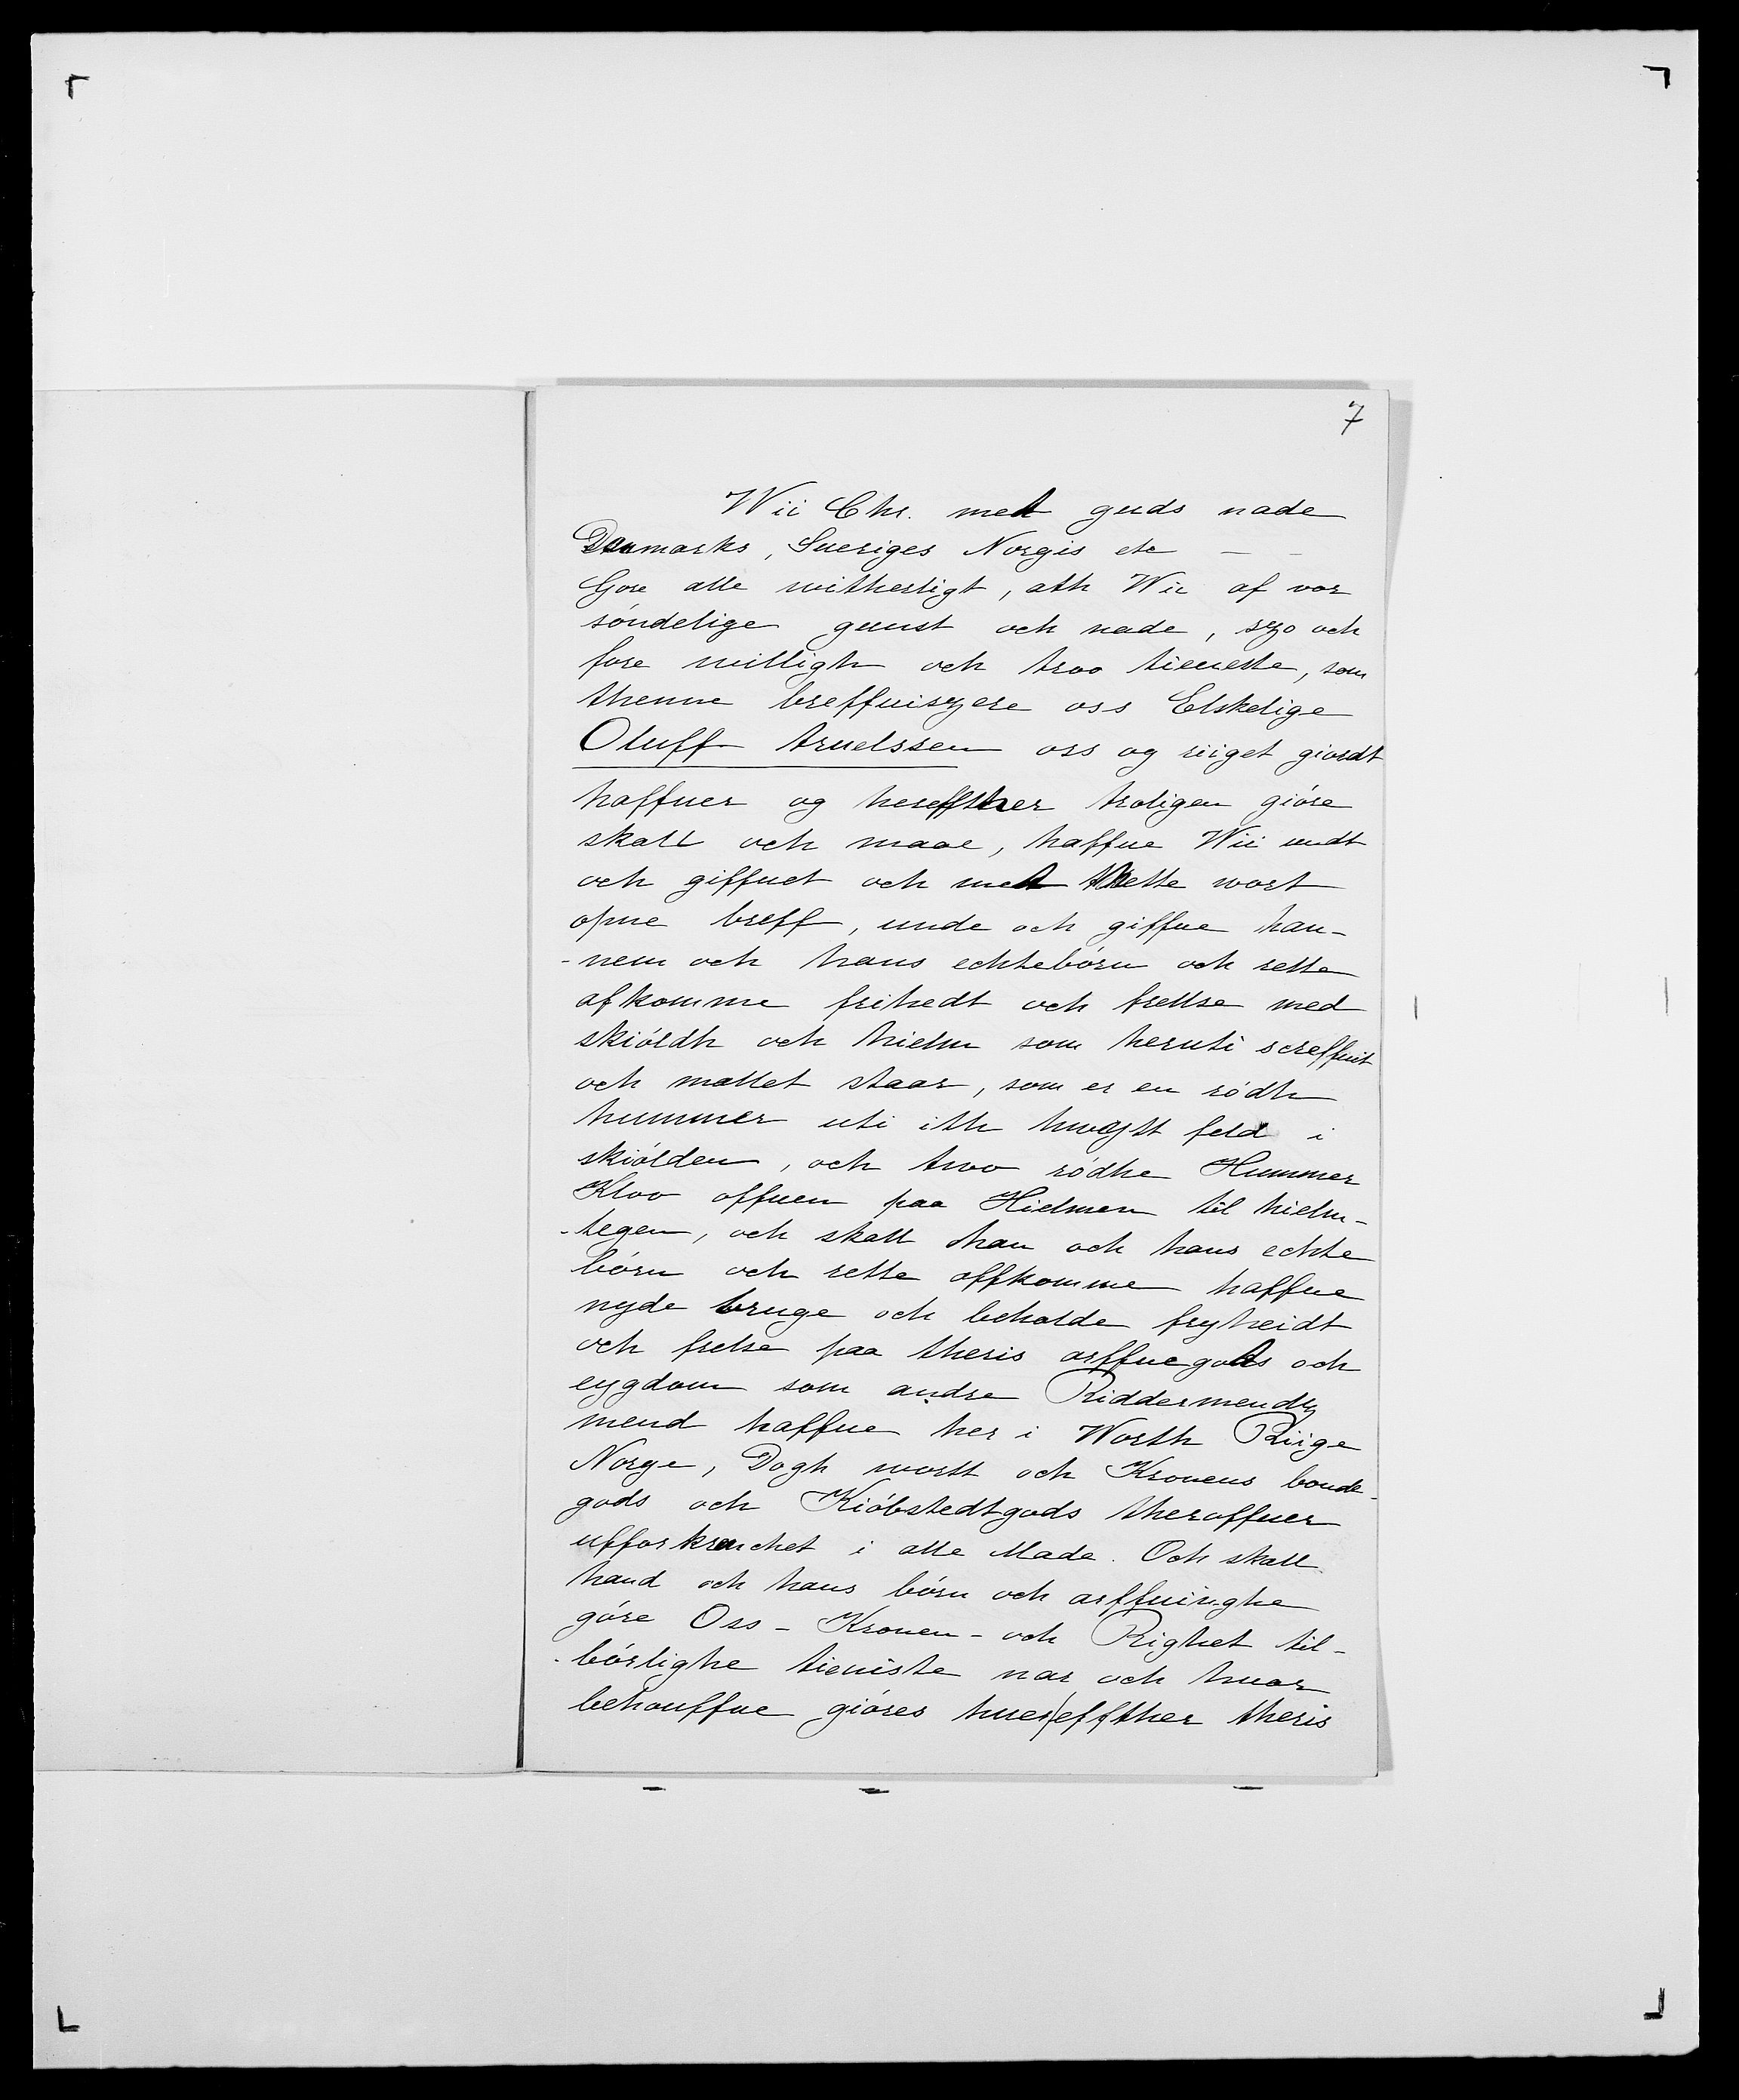 7
Wii Chr. met guds nade
Danmarks, Sueriges Norgis etc – –
Gøre alle witherligt, ath Wii af vor
sóndelige gunst och nade, szo och
fore willigh och troo tieneste, som
thenne breffuiszere oss Elskelige
Oluff truelssen oss og riiget giordt
haffuer og hereffther troligen gióre
skall och maae, haffue Wii undt
och giffuet och met thette wort
opne breff, unde och giffue han-
-nem och hans echtebórn och rette
afkomme frihedt och frellse med
skióldh och hielm som heruti screffuit
och mallet staar, som er en ródh
hummer uti ith hwijtt feld i
skiólden, och twoo ródhe Hummer
Kloo offuen paa Hielmen til hielm-
-tegen, och skall han och hans echte
bórn och rette affkomme haffue
nyde bruge och beholde fryheidt
och frelse paa theris arffuegods och
eygdom som andre Riddermendz
mend haffue her i Worth Riige
Norge, Dogh wortt och Kronens bonde-
gods och Kióbstedtgods theroffuer
ufforkrenchet i alle Made. Och skall
hand och hans bórn och arffuinghe
góre Oss – Kronen – och Righet til-
-bórlighe tieniste nar och huor
behouffue gióres huer effther theris